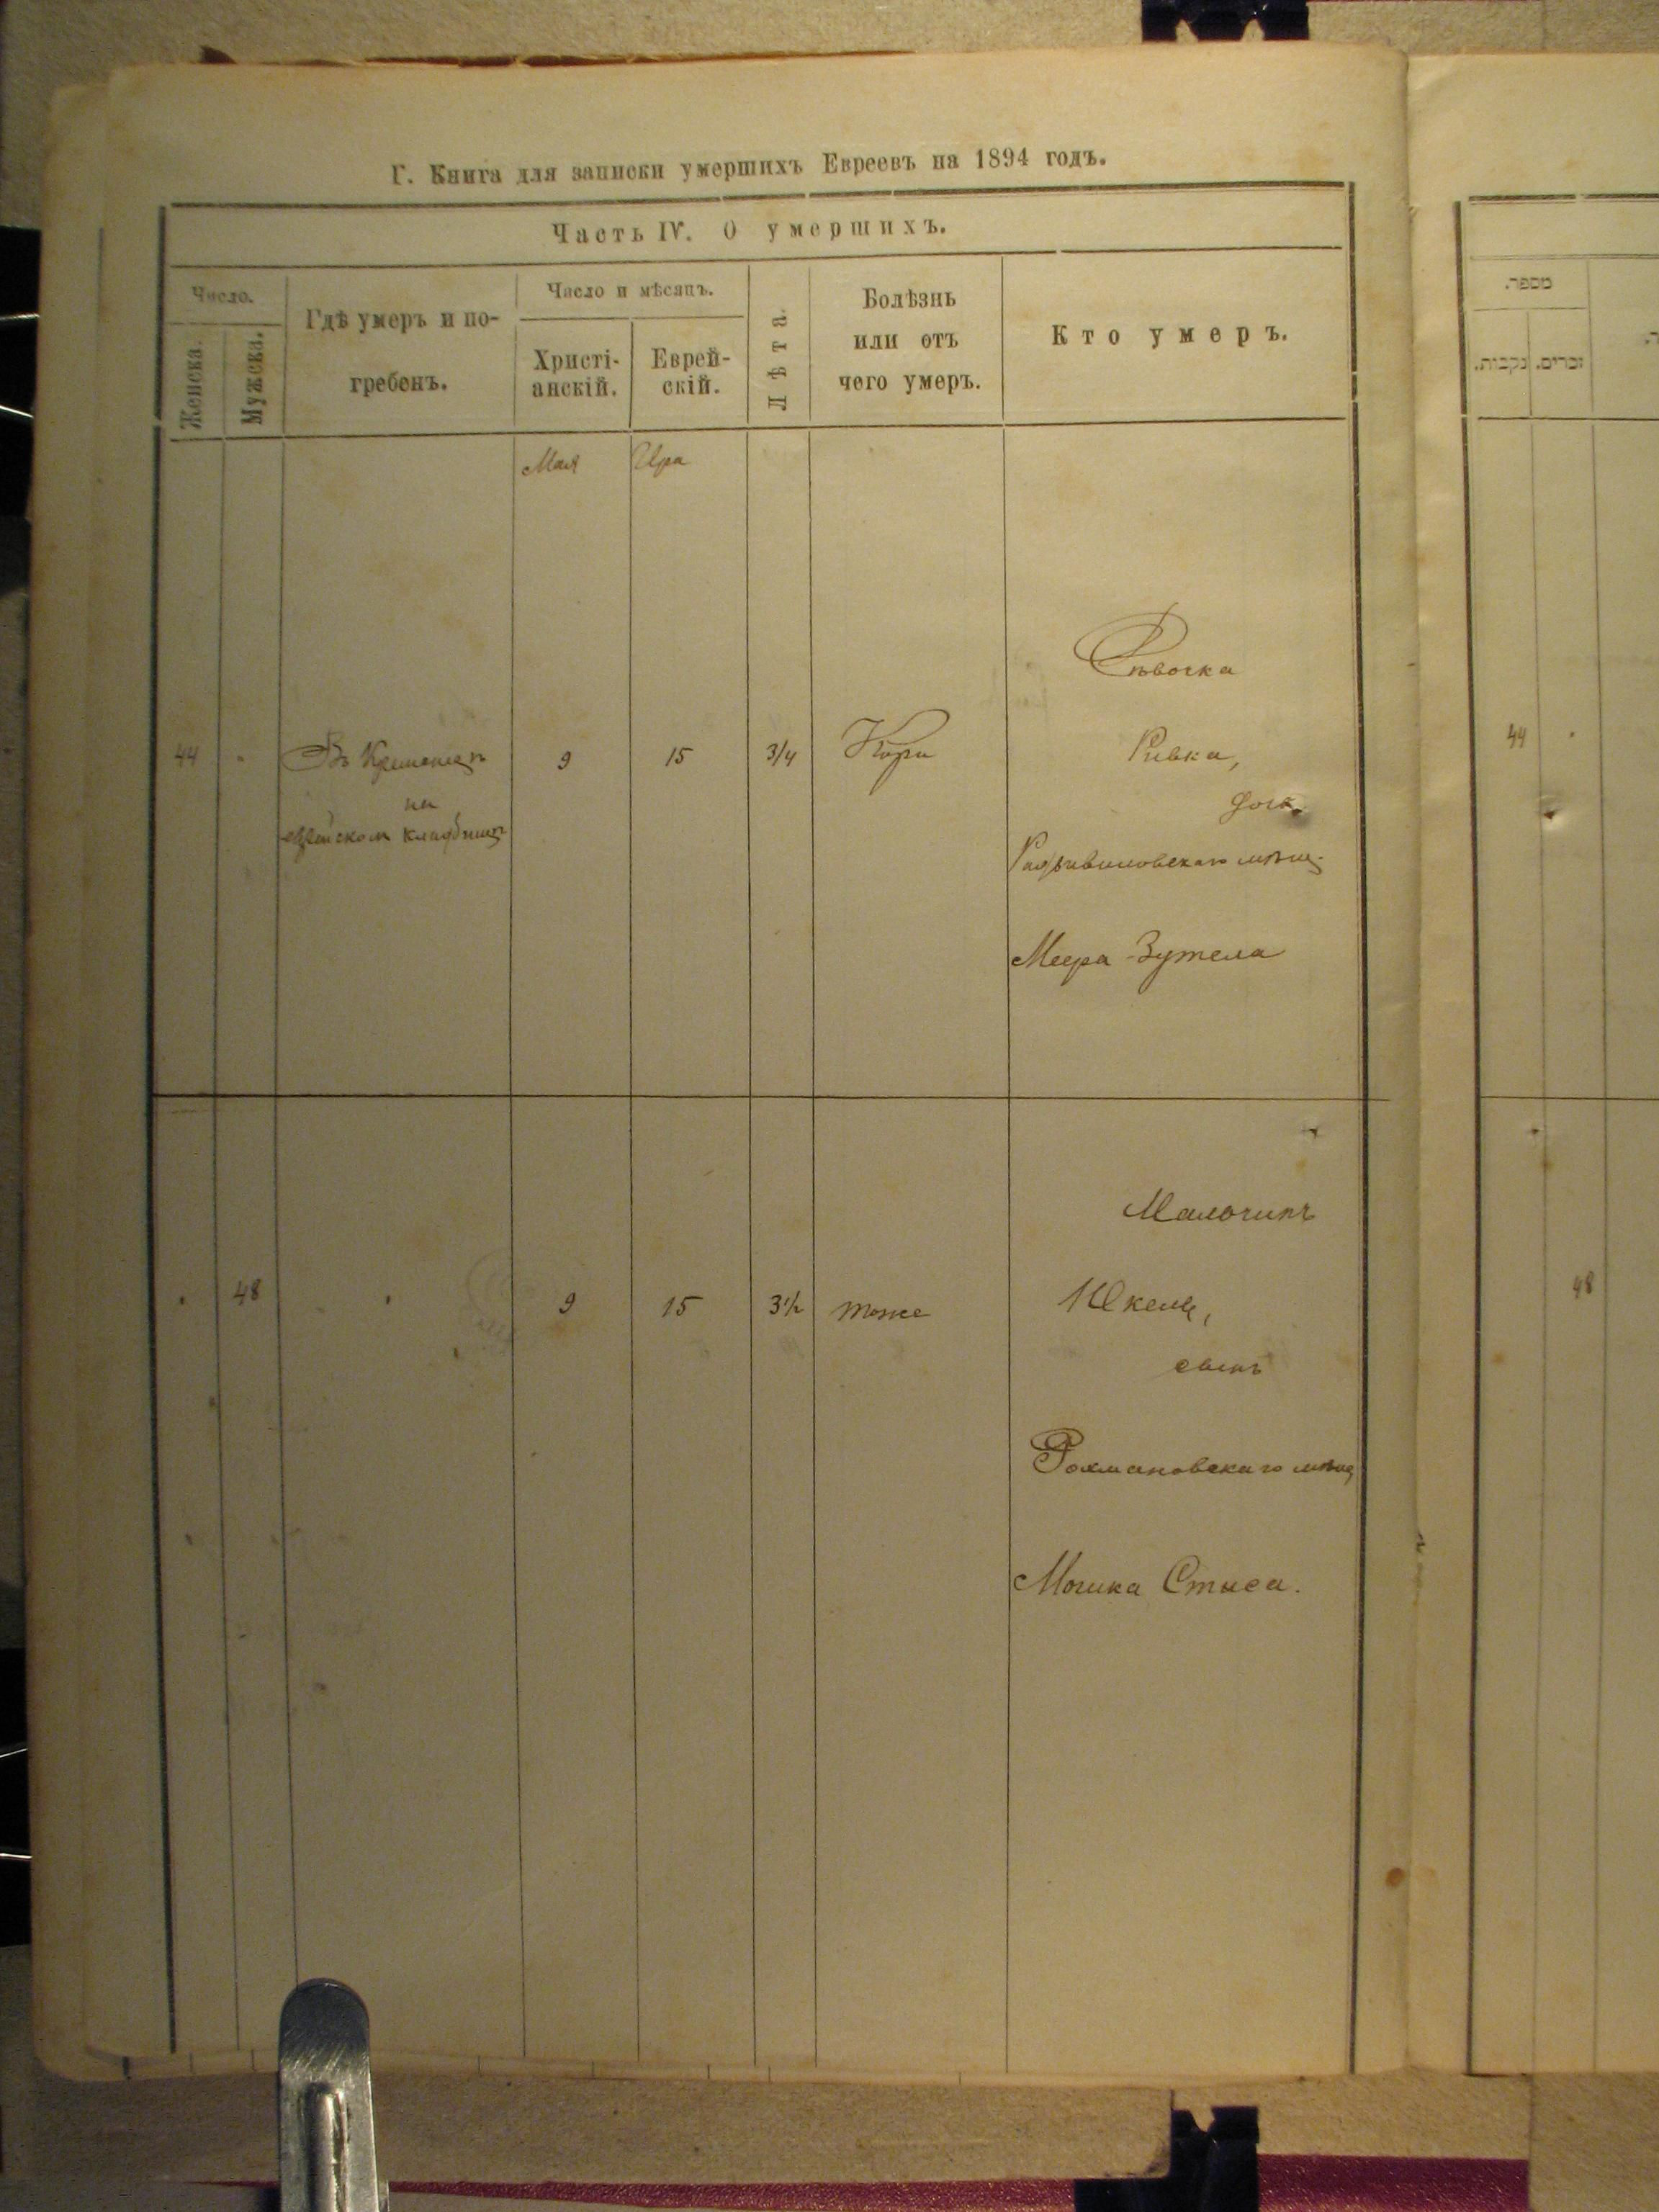 Г. Книга для записки умершихъ Евреевъ на 1894 годъ.
Часть IV. О умершихъ.
Число.
Женска.
Мужска.
Гдѣ умеръ и по-
гребенъ.
Число и мѣсяцъ.
Христі-
анскій.
Еврей-
скій.
Лѣта.
Болѣзнь
или отъ
чего умеръ.
Кто умеръ.
Мая
Ира
Дѣвочка
44
Въ Кременцѣ
9
15
3/4
Кори
Ривка,
на
дочь
еврейском кладбищѣ
Радзивиловскаго мѣщ.
Меера Зутела
Мальчикъ
48
9
15
3 1/2
тоже
сынъ
Рохмановскаго мѣщ
Мошка Стыса.
מספר.
נקבות.
זכרים.
44
48